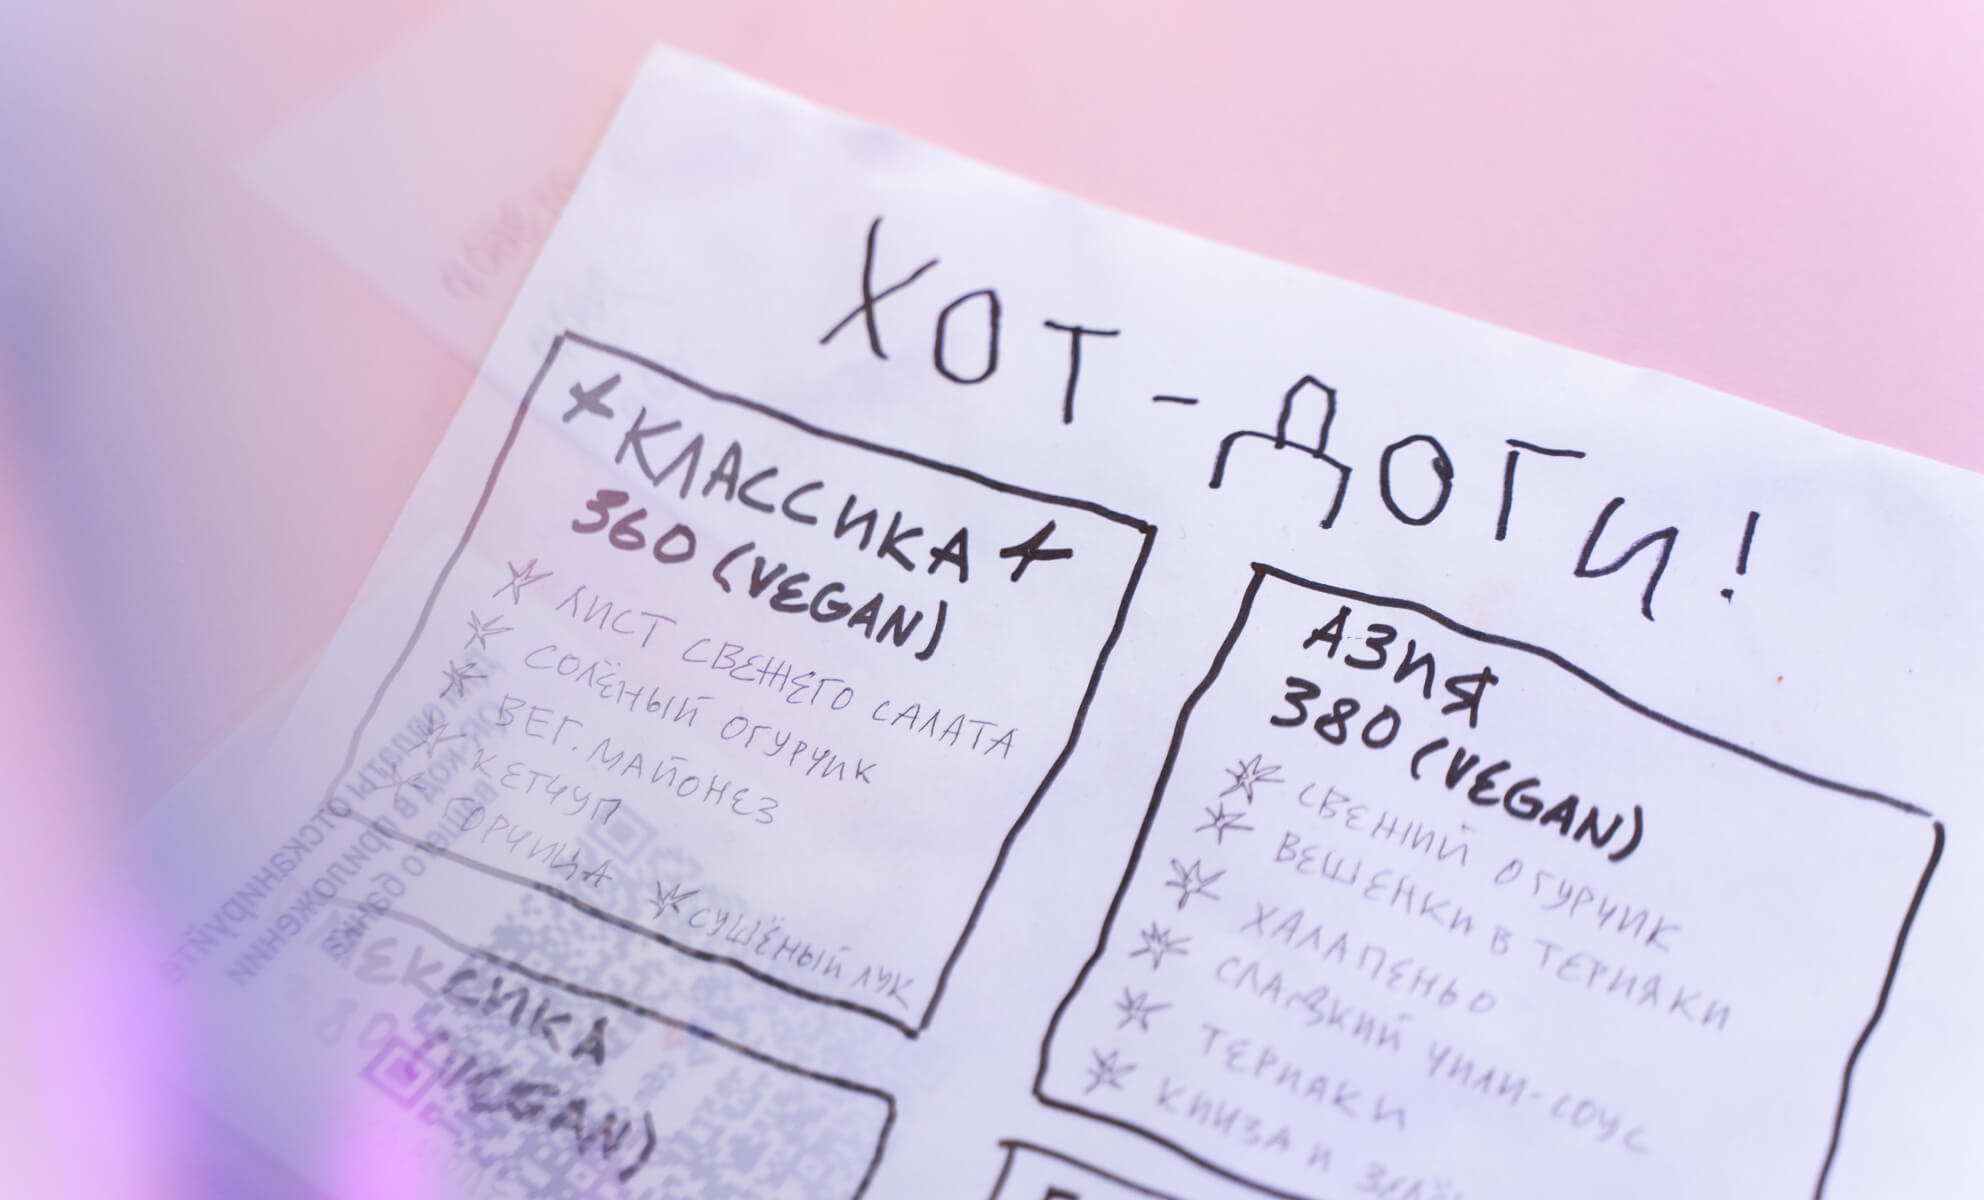 ХОТ-ДОГИ!
КЛАССИКА
360 (VEGAN)
ЛИСТ СВЕЖЕГО САЛАТА
СОЛЁНЫЙ ОГУРЧИК
ВЕГ. МАЙОНЕЗ
КЕТЧУП
ГОРЧИЦА
СУШЁНЫЙ ЛУК
АЗИЯ
380 (VEGAN)
СВЕЖИЙ ОГУРЧИК
ВЕШЕНКИ В ТЕРИЯКИ
ХАЛАПЕНЬО
СЛАДКИЙ ЧИЛИ-СОУС
ТЕРИЯКИ
КИНЗА И
380
(VEGAN)
оплаты отсканируйте
QR-код в приложении
вашего банка